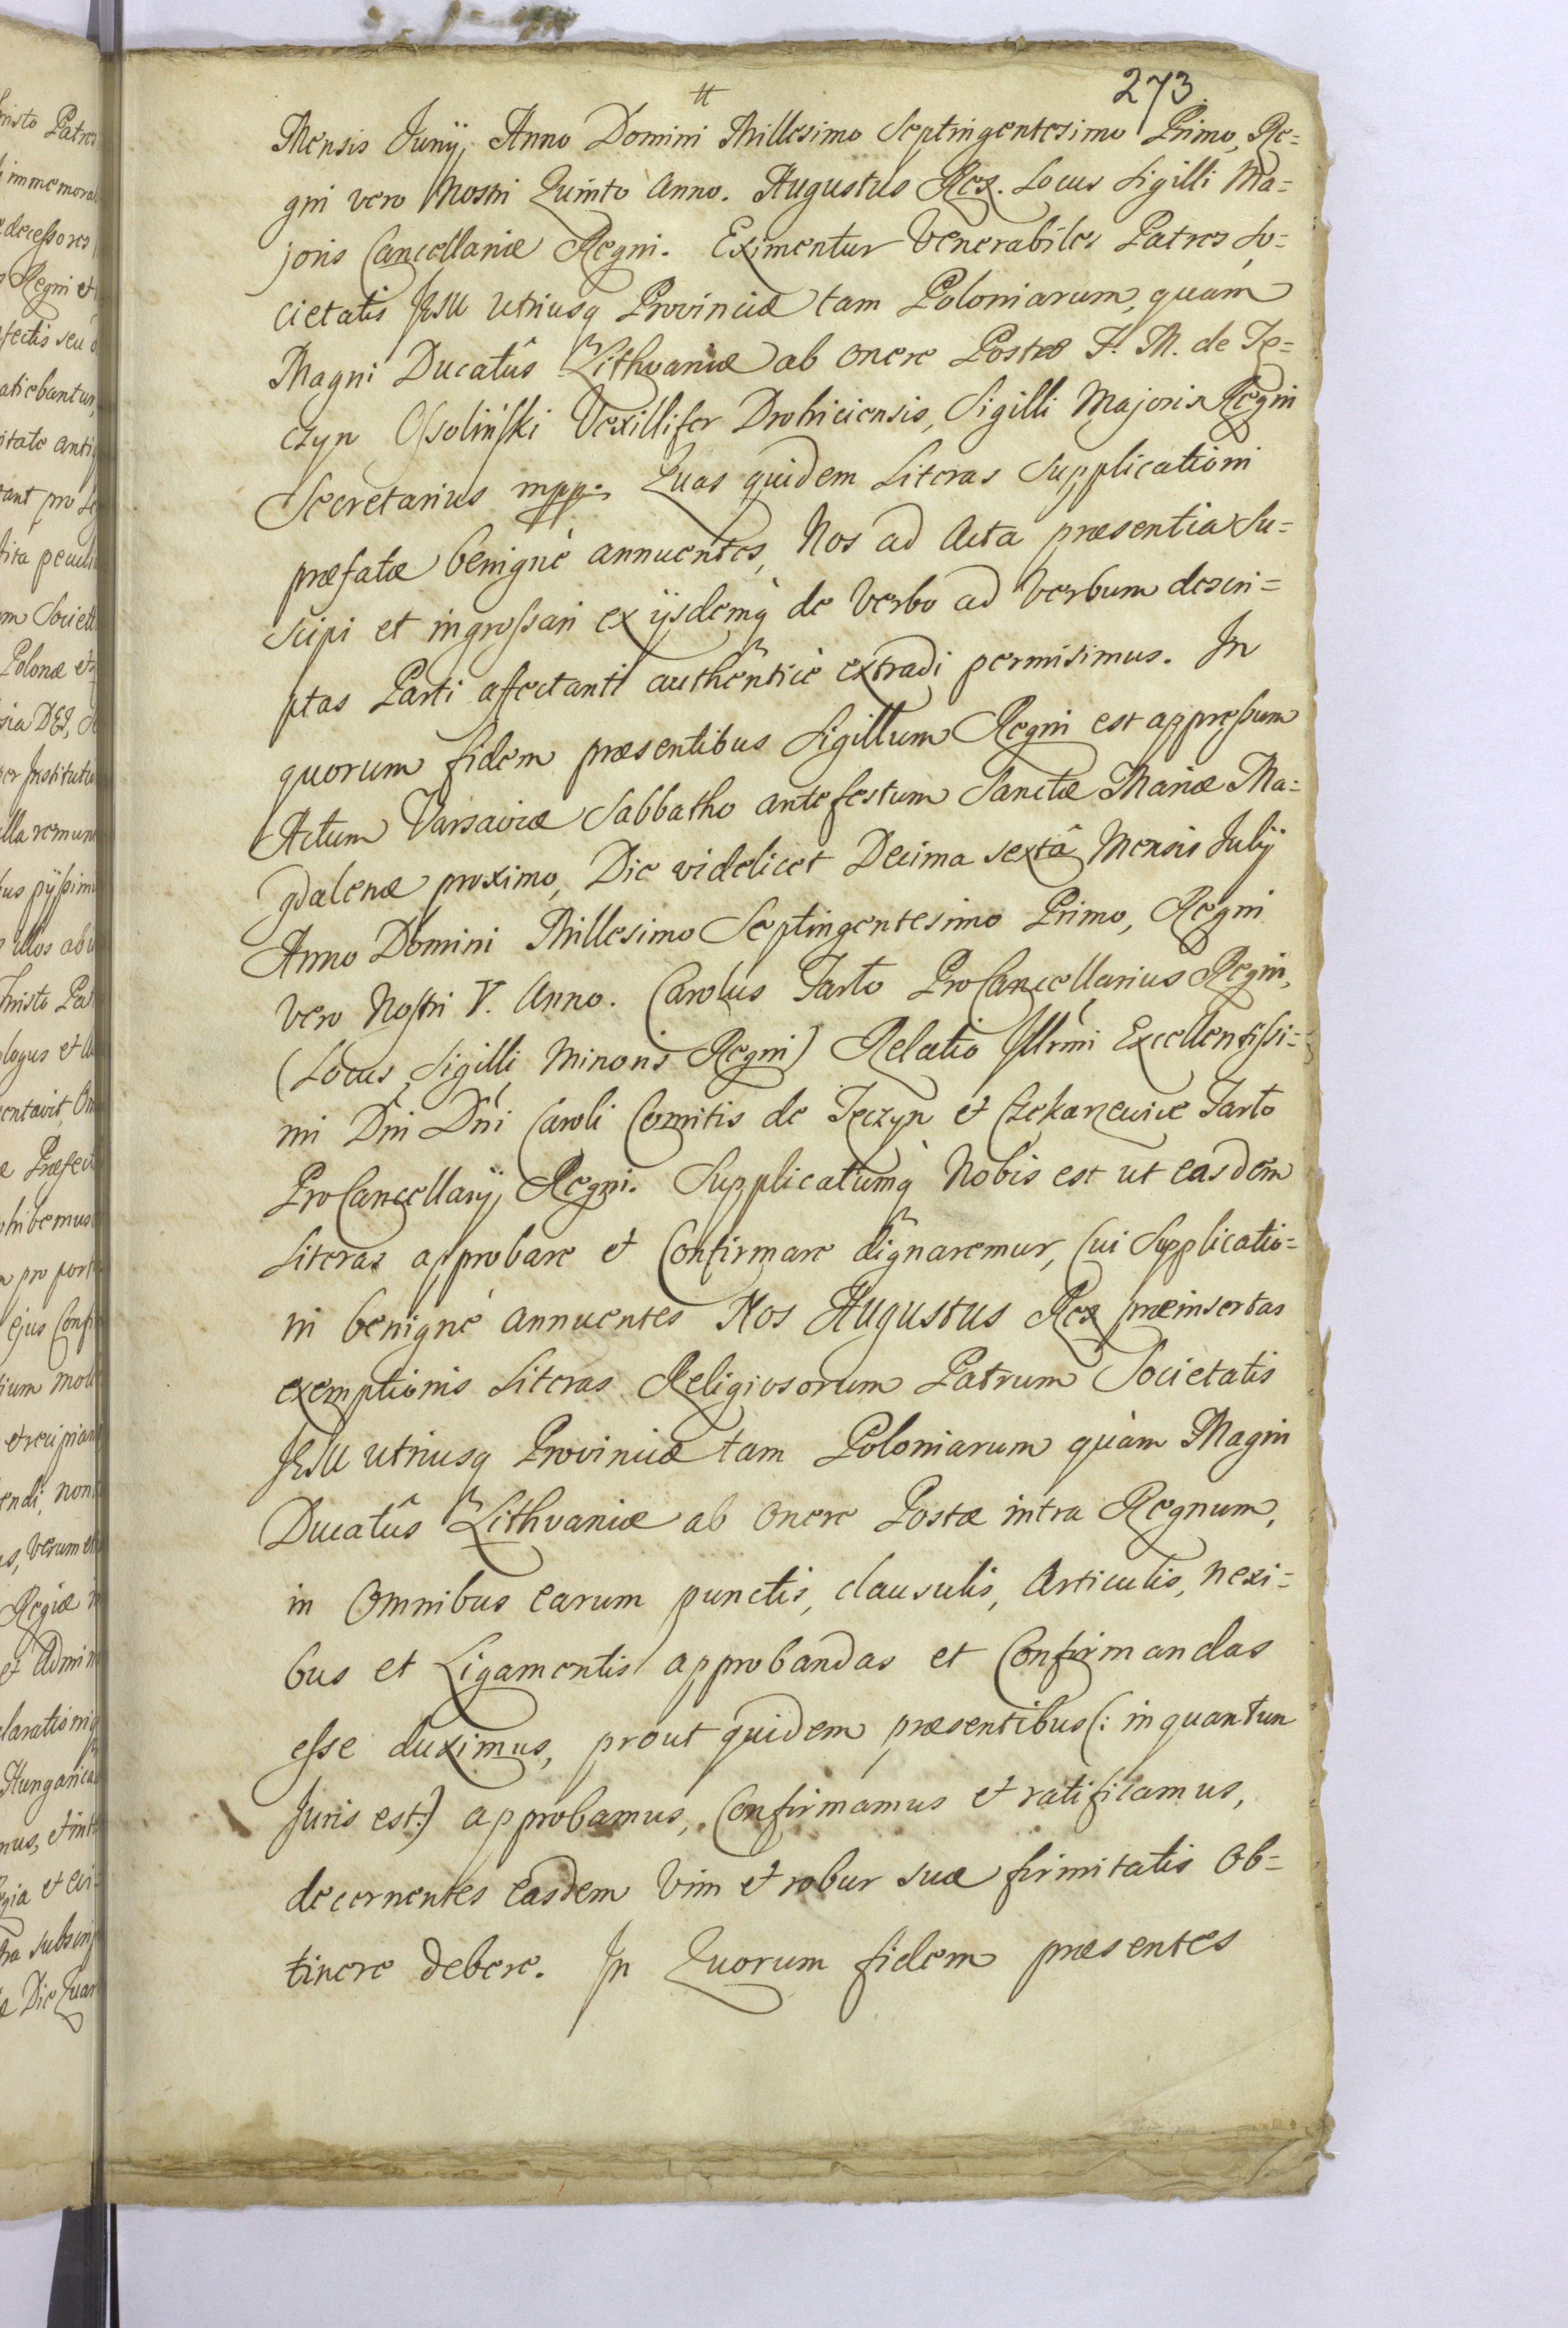 273
Mensis Junij, Anno Domini Millesimo Septingentesimo Primo, Re=
gni vero Nostri Quinto Anno. Augustus Rex. Locus Sigilli Ma=
joris Cancellariæ Regni. Eximentur Venerabiles Patres So=
cietatis JESU utriusq Provinciæ tam Poloniarum, quam
Magni Ducatûs Lithvaniæ ab onere Postæ F. M. de Tę=
czyn Ossoliński Vexillifer Drohiciensis, Sigilli Majoris Regni
Secretarius mpp. Quas quidem Literas Supplicationi
præfatæ benignè annuentes, Nos ad Acta præsentia Su=
scipi et ingrossari ex ijsdemq̀ de Verbo ad Verbum descri=
ptas Parti affectanti authenticè extradi permisimus. In
quorum fidem præsentibus Sigillum Regni est appressum
Actum Varsaviæ Sabbatho ante festum Sanctæ Mariæ Ma=
gdalenæ proximo, Die videlicet Decima sextâ Mensis Julij
Anno Domini Millesimo Septingentesimo Primo, Regni
vero Nostri V. Anno. Carolus Tarło ProCancellarius Regni,
(Locus Sigilli Minoris Regni) Relatio Illrmi Excellentissi=
mi Dni Dni Caroli Comitis de Tęczyn et Czekarzewice Tarło
ProCancellarij Regni. Supplicatumq̀ Nobis est ut easdem
Literas approbare et Confirmare dignaremur, Cui Supplicatio=
ni benignè annuentes Nos Augustus Rex præinsertas
exemptionis Literas Religiosorum Patrum Societatis
JESU utriusq Provinciæ tam Poloniarum quàm Magni
Ducatûs Lithvaniæ ab onere Postæ intra Regnum,
in Omnibus earum punctis, clausulis, Articulis, nexi=
bus et Ligamentis approbandas et Confirmandas
esse duximus, prout quidem præsentibus (: inquantum
Juris est:) approbamus, Confirmamus et ratificamus,
decernentes easdem Vim et robur suæ firmitatis Ob=
tinere debere. In Quorum fidem præsentes